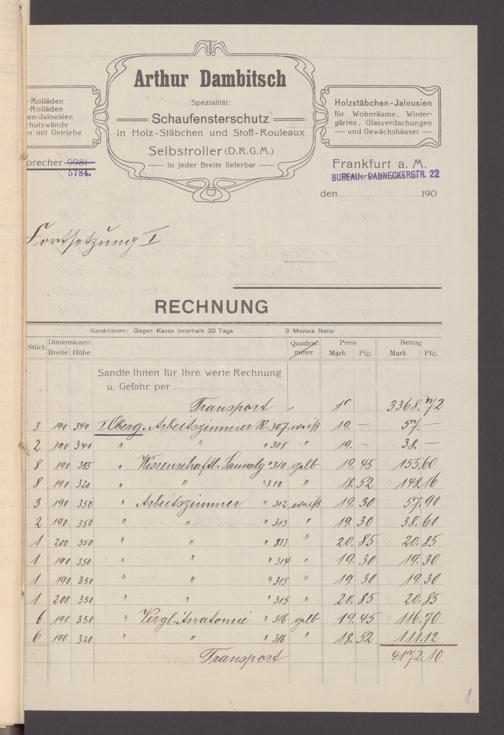 Arthur Dambitsch
Spezialität:
Schaufensterschutz
in Holz-Stäbchen und Stoff-Rouleaux
Selbstroller (D.R.G.M.)
in jeder Breite lieferbar
-Rolläden
-Rolläden
en-Jalousien
hutzwände
n mit Getriebe
Holzstäbchen-Jalousien
für Wohnräume, Winter-
gärten, Glasverdachungen
und Gewächshäuser
precher 9981
5784.
Frankfurt a. M.
BUREAU: DANNECKERSTR. 22
den 190
Fortsetzung I
RECHNUNG
Konditionen: Gegen Kasse innerhalb 30 Tage 3 Monate Netto
Stück Dimensionen Quadrat- Preis Betrag
Breite Höhe meter Mark Pfg. Mark Pfg.
Sandte Ihnen für Ihre werte Rechnung
u. Gefahr per
Transport 3368.72
3 190 340 I Oberg. Arbeitszimmer R. 307 weiß 19.— 57.—
2 190 340 " " " 308 " 19.— 38.—
8 190 355 " Wissenschaftl. Sammlg " 310 gelb 19.45 155.60
8 190 320 " " " 310 " 18.52 148.16
3 190 350 " Arbeitszimmer " 312 weiß 19.30 57.90
2 190 350 " " " 313 " 19.30 38.60
1 200 350 " " " 313 " 20.85 20.85
1 190 350 " " " 314 " 19.30 19.30
1 190 350 " " " 315 " 19.30 19.30
1 200 350 " " " 315 " 20.85 20.85
6 190 350 " Vergl. Anatomie " 316 gelb 19.45 116.70
6 190 320 " " " 316 " 18.52 111.12
Transport 4172.10